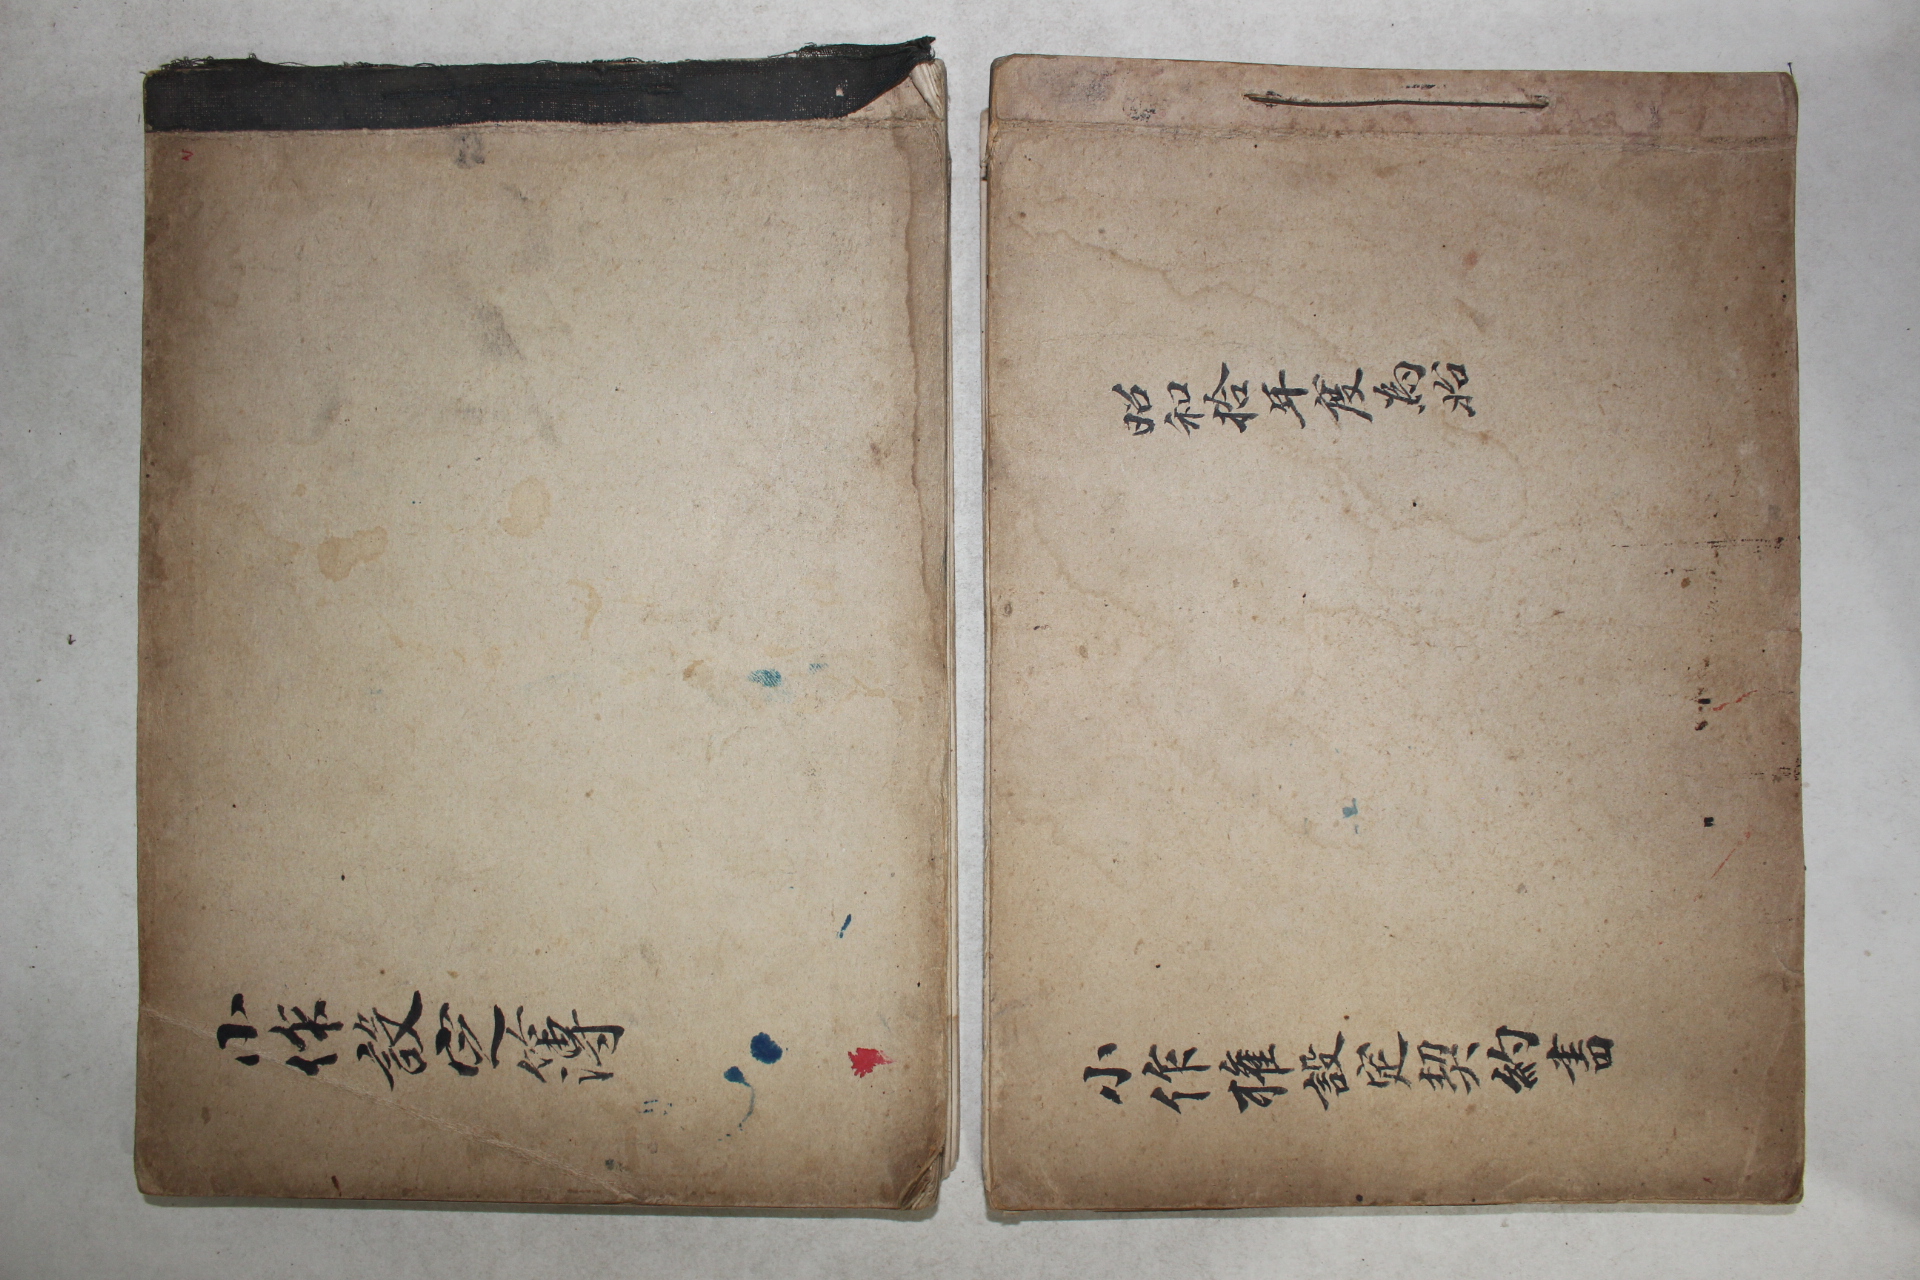 小作設定簿
昭和拾年度為始
小作権設定契約書